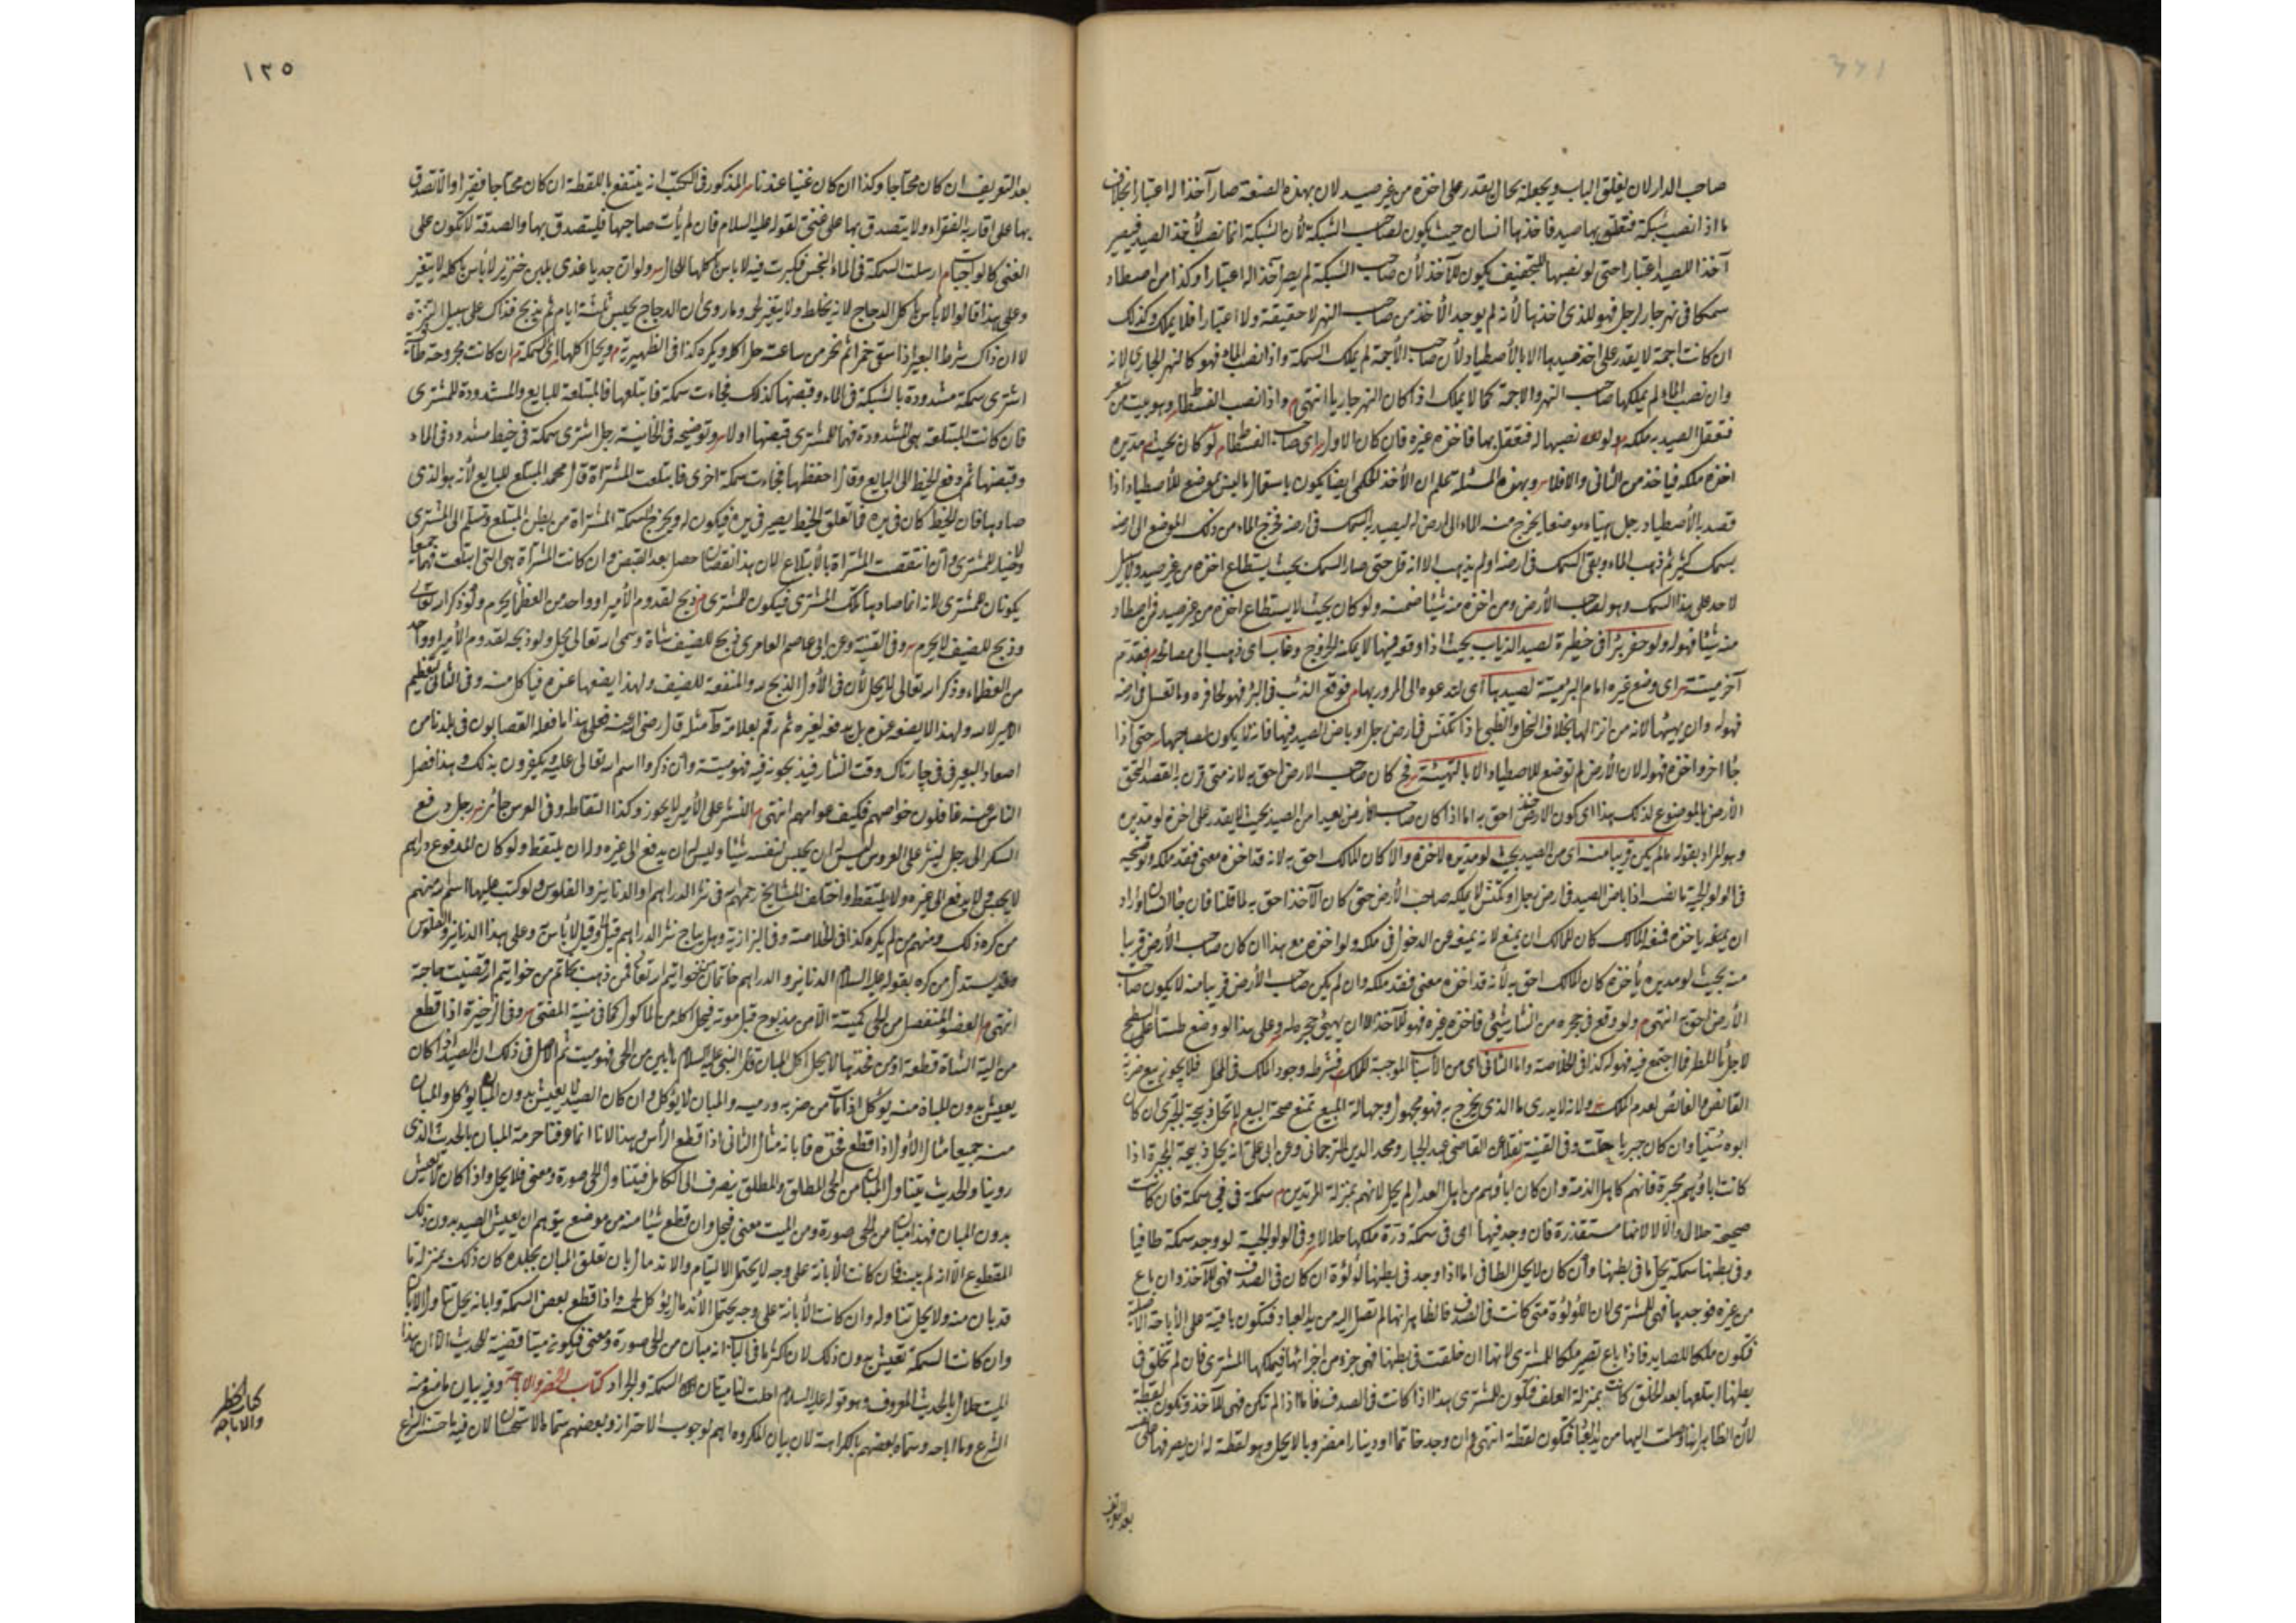 صاحب الدار لان يغلق الباب ويجعله بحال يقدر على اخذه من غير صيد لان بهذه الصنعة صار آخذا له اعتبارا بخلاف
ما اذا نصب شبكة فتعلق بها صيد فاخذها انسان حيث يكون لصاحب الشبكة لأن الشبكة انما تنصب لأخذ الصيد فيصير
آخذا للصيد اعتبارا حتى لو نصبها للتجفيف يكون للآخذ لأن صاحب الشبكة لم يصر آخذا له اعتبارا وكذا من اصطاد
سمكا فى نهر جار لرجل فهو للذى اخذها لأنه لم يوجد الأخذ من صاحب النهر لا حقيقة ولا اعتبارا فلا يملك وكذلك
ان كانت اجمة لا يقدر على اخذ صيدها الا بالأصطياد لأن صاحب الأجمة لم يملك السمكة واذا نضب الماء فهو كالنهر الجارى لانه
وان نضب الماء لم يملكها صاحب النهر والاجمة كما لا يملك اذا كان النهر جاريا انتهى واذا نصب الفسطاط وهو بيت من شعر
فتعقل الصيد به ملكه ولو نصبها له فتعقل بها فاخذه غيره فان كان الاول اى صاحب الفسطاط لو كان بحيث مد يده
اخذه ملكه فيأخذ من الثانى والا فلا وبهذه المسئلة تعلم ان الأخذ الحكمى ايضا يكون باستعمال ما ليس بموضع للأصطياد اذا
قصد به الأصطياد رجل هيأه موضعا يخرج منه الماء الى ارض له ليصيد به السمك فى ارضه فخرج الماء من ذلك الموضع الى ارضه
بسمك كثير ثم ذهب الماء وبقى السمك فى ارضه او لم يذهب الا انه قل حتى صار السمك بحيث يستطاع اخذه من غير صيد ولا سبيل
لاحد على هذا السمك وهو لصاحب الأرض ومن اخذه منه شيئا ضمنه ولو كان بحيث لا يستطاع اخذه من غير صيد فمن اصطاد
منه شيئا فهو له ولو حفر بئرا فى خطيرة لصيد الذياب بحيث اذا وقع فيها لا يمكنه الخروج وغاب اى ذهب الى مصالحه فقدم
آخر ميتة اى وضع غيره امام البئر ميتة لصيد بها اى لتدعوه الى المرور بها فوقع الذئب فى البئر فهو لحافره وما تعسل فى ارضه
فهو له وان لم يهيئها لانه من انزالها بخلاف النحل والظبى اذا تكنس فى ارض رجل او باض الصيد فيها فانه لا يكون لصاحبها حتى اذا
جاء آخر واخذه فهو له لان الأرض لم توضع للاصطياد الا بالتهيئة فح كان صاحب الارض احق به لانه متى قرن به القصد التحق
الأرض بالموضوع لذلك هذا اى كون الارض احق به اما اذا كان صاحب الأرض بعيدا من الصيد بحيث لا يقدر على اخذه لو مد يده
وهو المراد بقوله ما لم يكن قريبا منه اى من الصيد بحيث لو مد يده لاخذه والا كان المالك احق به لانه قد اخذه معنى فقد ملكه وتوضيحه
فى الولوالجية ما نصه اذا باض الصيد فى ارض رجل او تكنس لا يملكه صاحب الأرض حتى كان الآخذ احق به لما قلنا فان جاء انسان واراد
ان يمنعه ياخذه فمنعه المالك كان للمالك ان يمنع لانه يمنعه عن الدخول فى ملكه ولو اخذه مع هذا ان كان صاحب الأرض قريبا
منه بحيث لو مد يده يأخذه كان المالك احق به لأنه قد اخذه معنى فقد ملكه وان لم يكن صاحب الأرض قريبا منه لا يكون صاحب
الأرض احق به انتهى ولو وقع فى حجره من النثار شيئ فاخذه غيره فهو للآخذ الا ان يهيئ حجره له وعلى هذا لو وضع طستا على السطح
لاجل ماء المطر فما اجتمع فيه فهو له كذا فى الخلاصة واما الثانى اى من الأسباب الموجبة للملك فشرطه وجود الملك فى المحل فلا يجوز بيع ضربة
القانص والغائص لعدم الملك ولانه لا يدرى ما الذى يخرج به فهو مجهول وجهالة المبيع تمنع صحة البيع لا تحل ذبيحة الجبرى ان كان
ابوه سنيا وان كان جبريا حلت وفى القنية نقلا عن القاضى عبد الجبار ومجد الدين الترجمانى وعن ابى على انه يحل ذبيحة المجبرة اذا
كانت اباؤهم مجبرة فانهم كاهل الذمة وان كان اباؤهم من اهل العدل لم يحل لانهم بمنزلة المرتدين سمكة فى سمكة فان كانت
صحيحة حلال والا لا لانها مستقذرة فان وجد فيها اى فى سمكة درة ملكها حلالا وفى الولوالجية لو وجد سمكة طافيا
وفى بطنها سمكة يحل ما فى بطنها وان كان لا يحل الطافى اما اذا وجد فى بطنها لؤلؤة ان كان فى الصدف فهى للآخذ وان باع
من غيره فوجد بها فهى للمشترى لان اللؤلؤة متى كانت فى الصدف فالظاهر انها لم تصل اليه من يد العباد فتكون باقية على الأباحة الاصلية
فتكون ملكا للصايد فاذا باع تصير ملكا للمشترى لانها ان خلقت فى بطنها فهى جزء من اجزائها فيملكها المشترى فان لم تخلق فى
بطنها ابتلعها بعد الخلق كانت بمنزلة العلف فتكون للمشترى هذا اذا كانت فى الصدف فاما اذا لم تكن فهى للآخذ وتكون لقطة
لأن الظاهر انها وصلت اليها من يد العباد فتكون لقطة انتهى وان وجد خاتما او دينارا مضروبا لا يحل وهو لقطة له ان يصرفها على نفسه
بعد التعريف
١٢٥
بعد التعريف ان كان محتاجا وكذا ان كان غنيا عندنا المذكور فى الكتب انه ينتفع باللقطة ان كان محتاجا فقيرا والا تصدق
بها على اقاربه الفقراء ولا يتصدق بها على غنى لقوله عليه السلام فان لم يأت صاحبها فليتصدق بها والصدقة لا تكون على
الغنى كالواجبات ارسلت السمكة فى الماء النجس فكبرت فيه لا باس باكلها للحال ولو ان جديا غذى بلبن خنزير لا بأس باكله لا يتغير
وعلى هذا قالوا لا بأس باكل الدجاج لانه يخلط ولا يتغير لحمه وما روى ان الدجاج يحبس ثلثة ايام ثم يذبح فذاك على سبيل التنزه
لا ان ذاك شرط البعير اذا سقى خمرا ثم نحر من ساعته حل اكله ويكره كذا فى الظهيرية ويحل اكلها اى السمكة ان كانت مجروحة طآفية
اشترى سمكة مشدودة بالشبكة فى الماء وقبضها كذلك فجاءت سمكة فابتلعتها فالمبتلعة للبايع والمشدودة للمشترى
فان كانت المبتلعة هى المشدودة فهما للمشترى قبضها اولا وتوضيحه فى الخانية رجل اشترى سمكة فى خيط مشدود فى الماء
وقبضها ثم دفع الخيط الى البايع وقال احفظها فجاءت سمكة اخرى فابتلعت المشتراة قال محمد المبتلع للبايع لأنه هو الذى
صادها فان الخيط كان فى يده فما تعلق بالخيط يصير فى يده فيكون له ويخرج السمكة المشتراة من بطن المبتلع وتسلم الى المشترى
ولا خيار للمشترى وان انتقصت المشتراة بالابتلاع لان هذا نقصان حصل بعد القبض وان كانت المشتراة هى التى ابتلعت فهما جميعا
يكونان للمشترى لانه انما صادها ملك المشترى فيكون للمشترى ذبح لقدوم الأمير او واحد من العظماء يحرم ولو ذكر الله تعالى
وذبح للضيف لا يحرم وفى القنية وعن ابى عاصم العامرى ذبح للضيف شاة وسمى الله تعالى يحل ولو ذبحه لقدوم الأمير او واحد
من العظماء وذكر الله تعالى لا يحل لأن فى الأول الذبح لله والمنفعة للضيف ولهذا يضعها عنده فيأكل منه وفى الثانى تعظيم
الامير لا لله ولهذا لا يضعه عنده بل يدفعه لغيره ثم رقم بعلامة ط مثله قال رضى الله عنه فعلى هذا ما فعله القصابون فى بلدنا من
اصعاد البعير فى جارتاك وقت النثار فيذبحونه فيه فهو ميتة وان ذكروا اسم الله تعالى عليه ويكفرون بذلك وهذا فصل
الناس عنه غافلون خواصهم فكيف عوامهم انتهى النثر على الأمير لا يجوز وكذا التقاطه وفى العرس جائز رجل دفع
السكر الى رجل لينثر على العروس ليس له ان يحبس لنفسه شيئا وليس له ان يدفع الى غيره وله ان يلتقط ولو كان المدفوع دراهم
لا يحبس ولا يدفع الى غيره ولا يلتقط واختلف المشايخ رحمهم الله فى نثر الدراهم والدنانير والفلوس ولو كتب عليها اسم الله منهم
من كره ذلك ومنهم من لم يكره كذا فى الخلاصة وفى البزازية وهل يباح نثر الدراهم قيل لا وقيل لا بأس وعلى هذا الدنانير والفلوس
وقد يستدل من كره بقوله عليه السلام الدنانير والدراهم خاتمان من خواتيم الله تعالى فمن ذهب بخاتم من خواتيم الله قضيت حاجته
انتهى العضو المنفصل من الحى كميتته الا من مذبوح قبل موته فيحل اكله من المأكول كما فى منية المفتى وفى الذخيرة اذا قطع
من الية الشاة قطعة او من فخذها لا يحل اكل المبان قال النبى عليه السلام ما ابين من الحى فهو ميت ثم الاصل فى ذلك ان الصيد اذا كان
يعيش بدون المبان منه يؤكل اذا مات من ضربه ورميه والمبان لا يؤكل وان كان الصيد لا يعيش بدون المبان يؤكل والمبان
منه جميعا مثال الأول اذا قطع فخذه فابانه مثال الثانى اذا قطع الرأس وهذا لانا انما عرفنا حرمة المبان بالحديث الذى
روينا والحديث يتناول المبان من الحى المطلق والمطلق ينصرف الى الكامل فيتناول الحى صورة ومعنى فلا يحل واذا كان لا يعيش
بدون المبان فهذا مبان من الحى صورة ومن الميت معنى فيحل وان قطع شيئا منه من موضع يتوهم ان يعيش الصيد بدون ذلك
المقطوع الا انه لم يبنه فان كانت الأبانة على وجه لا يحتمل الالتيام والاندمال بان تعلق المبان بجلده كان ذلك بمنزلة ما
قد بان منه ولا يحل تناوله وان كانت الأبانة على وجه يحتمل الأندمال يؤكل كله واذا قطع بعض السمكة وابانه يحل تناول المبان
وان كانت السمكة تعيش بدون ذلك لان اكثر ما فى الباب انه مبان من الحى صورة ومعنى فيكون ميتا قضية للحديث الا ان هذا
الميت حلال بالحديث المعروف وهو قوله عليه السلام احلت لنا ميتتان السمكة والجراد كتاب الحظر والاباحة وفيه بيان ما منع منه
الشرع وما اباحه وسماه بعضهم بالكراهية لان بيان المكروه اهم لوجوب الاحتراز وبعضهم سماه بالاستحسان لان فيه ما حسنه الشرع
كتاب الحظر
والاباحه